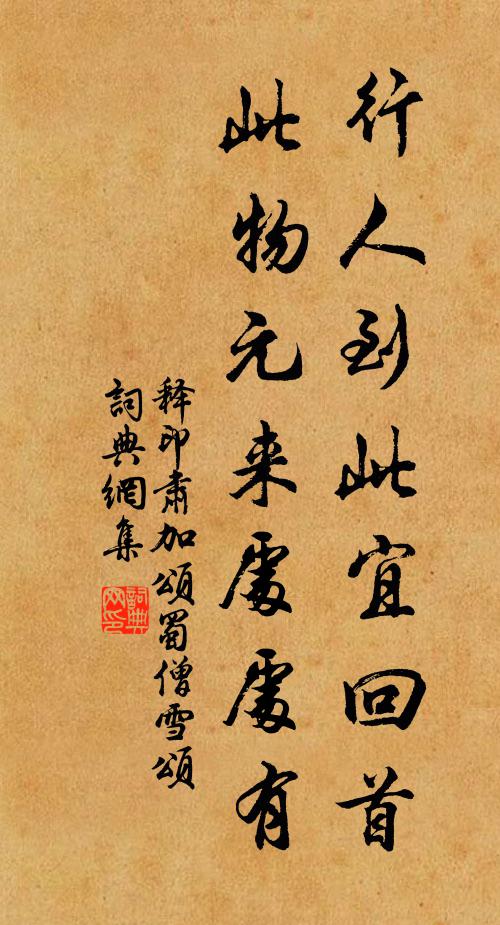 行人到此宜回首
此物元来處處有
释印肃加頌蜀僧雪頌
詞典網集
詞典
网印